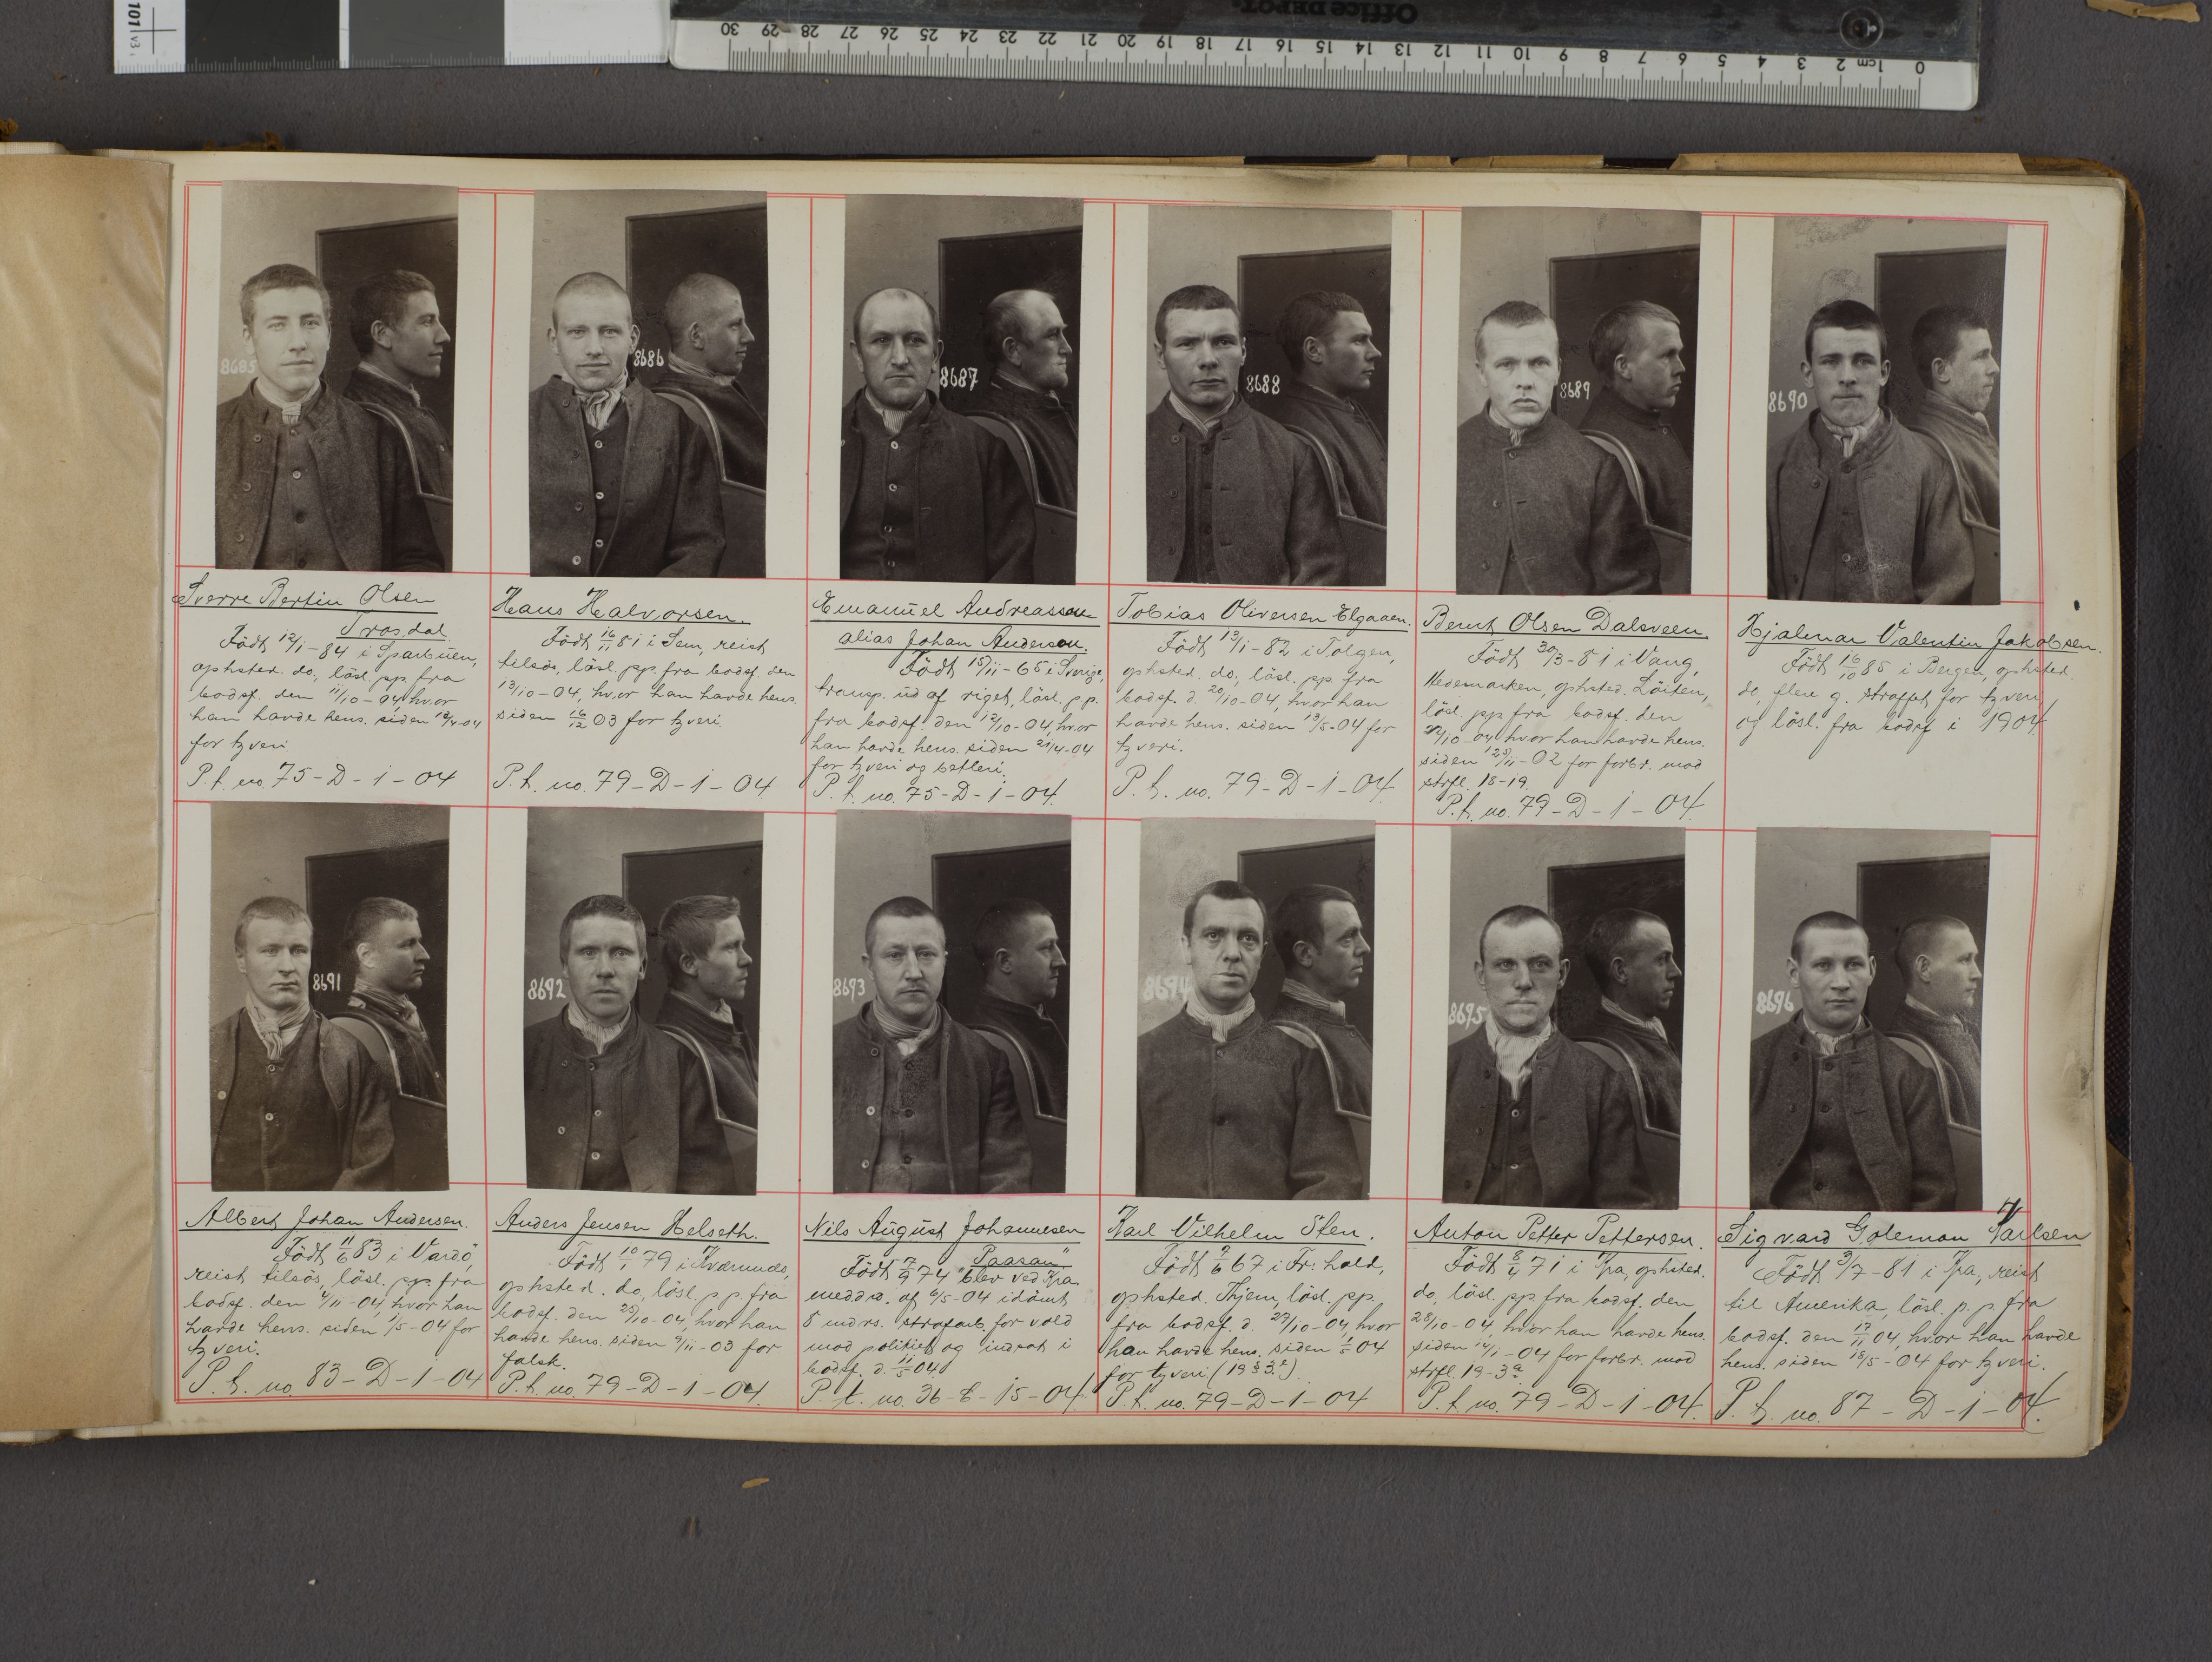 101 v3
Office DEPOT.
30 29 28 27 26 25 24 23 22 21 20 19 18 17 16 15 14 13 12 11 10 9 8 7 6 5 4 3 2 1cm 0
8685
8686
8687
8688
8689
8690
Sverre Bertin Olsen
Trosdal.
Født 12/1-84 i Sparbuen,
ophsted. do, løsl. pp. fra
bodsf. den 11/10-04, hvor
han havde hens. siden 12/4-04
for tyveri
P.t. no. 75-D-1-04
Hans Halvorsen.
Født 16/11 81 i Sem, reist
tilsøs, løsl. pp. fra bodsf. den
13/10-04, hvor han havde hens.
siden 16/12 03 for tyveri.
P.t. no. 79-D-1-04
Emanuel Andreasson
alias Johan Anderson.
Født 15/11-65 i Sverige,
transp. ud af riget, løsl. p.p.
fra bodsf. den 12/10-04, hvor
han havde hens. siden 21/4-04
for tyveri og betleri.
P.t. no. 75-D-1-04.
Tobias Oliversen Elgaaen.
Født 13/1-82 i Tolgen,
ophsted. do, løsl. pp. fra
bodsf. d. 20/10-04, hvor han
havde hens. siden 13/5-04 for
tyveri.
P.t. no. 79-D-1-04.
Bernt Olsen Dalsveen.
Født 30/3-81 i Vang,
Hedemarken, ophsted. Löiten,
løsl. pp fra bodsf. den
/10-04 hvor han havde hens.
siden /11-02 for forbr. mod
strfl. 18-19.
P.t. no. 79-D-1-04.
Hjalmar Valentin Jakobsen.
Født 16/10 85 i Bergen, ophsted.
do, flere g. straffet for tyveri
og løsl. fra bodsf i 1904.
8691
8692
8693
8694
8695
8696
Albert Johan Andersen.
Født 11/6 83 i Vardö,
reist tilsøs, løsl. pp. fra
bodsf. den 4/11-04, hvor han
havde hens. siden 1/5-04 for
tyveri.
P.t. no. 83-D-1-04
Anders Jensen Helseth.
Født 10/1 79 i Kværnnæs,
ophsted. do, løsl. p.p. fra
bodsf. den 25/10-04, hvor han
havde hens. siden 9/11-03 for
falsk.
P.t. no. 79-D-1-04.
Nils August Johannesen
"Paasan"
Født 7/9 74 blev ved Kra
meddr. af 6/5-04 idømt
5 mdrs. strafarb. for vold
mod politiet og indsat i
bodsf. d. 11/5 04.
P.t. no. 36-E-15-04.
Karl Vilhelm Sten.
Født 9/6 67 i Fr:hald,
ophsted. Thjem, løsl. pp.
fra bodsf. d. 27/10-04, hvor
han havde hens. siden 1/5 04
for tyveri (19 § 3.)
P.t. no. 79-D-1-04
Anton Petter Pettersen.
Født 8/4 71 i Kra, ophsted.
do, løsl. pp. fra bodsf. den
28/10-04, hvor han havde hens.
siden 14/1-04 for forbr. mod
strfl. 19-3a
P.t. no. 79-D-1-04.
Sigvard Goleman Karlsen
Født 3/7-81 i Kra, reist
til Amerika, løsl. p.p. fra
bodsf. den 17/11 04, hvor han havde
hens. siden 18/5-04 for tyveri.
P.t. no. 87-D-1-04.